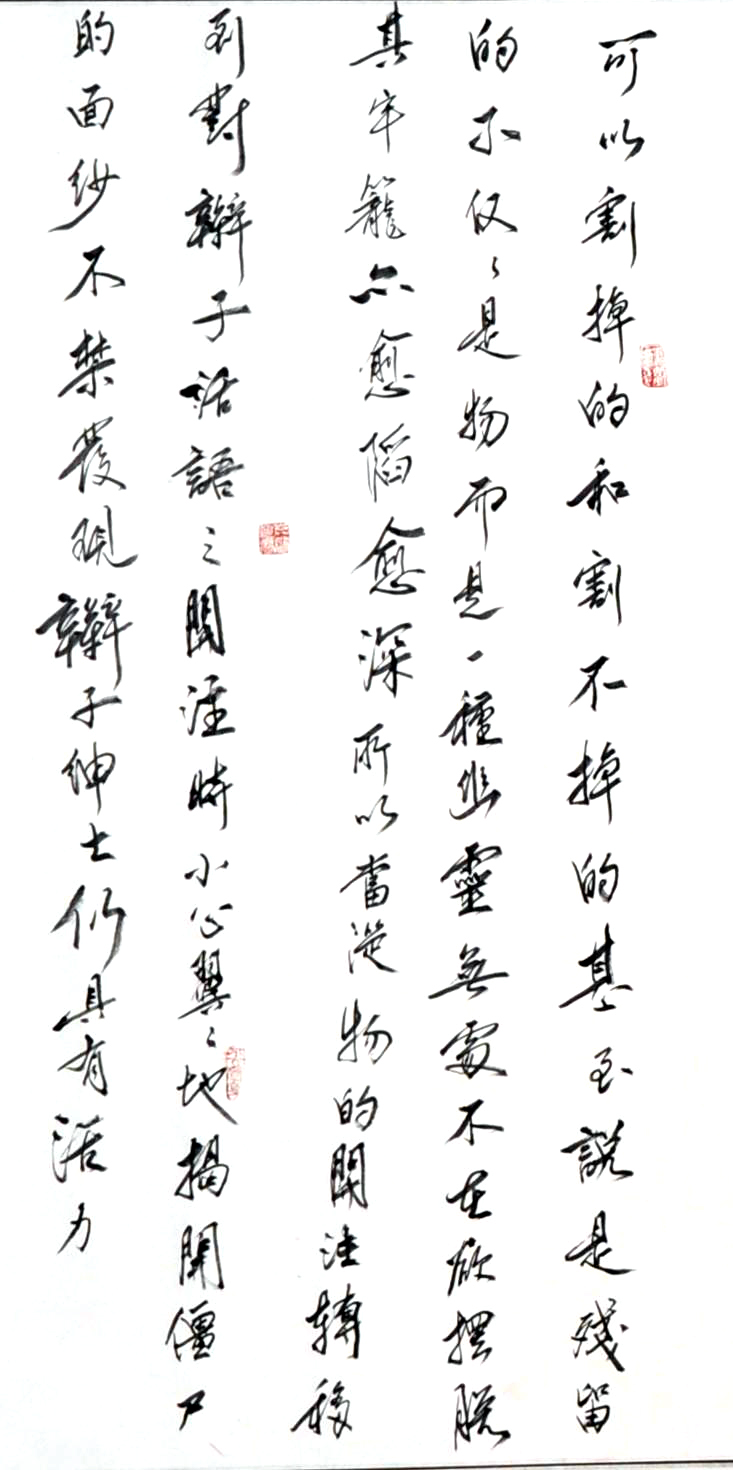 可以割掉的和割不掉的甚至說是殘留
的不仅仅是物而是一種幽靈無處不在欲擺脱
其牢籠亦愈陷愈深所以當從物的關注轉移
到對辮子話語之關注時小心翼翼地揭開僵尸
的面纱不禁發現辮子紳士仍具有活力